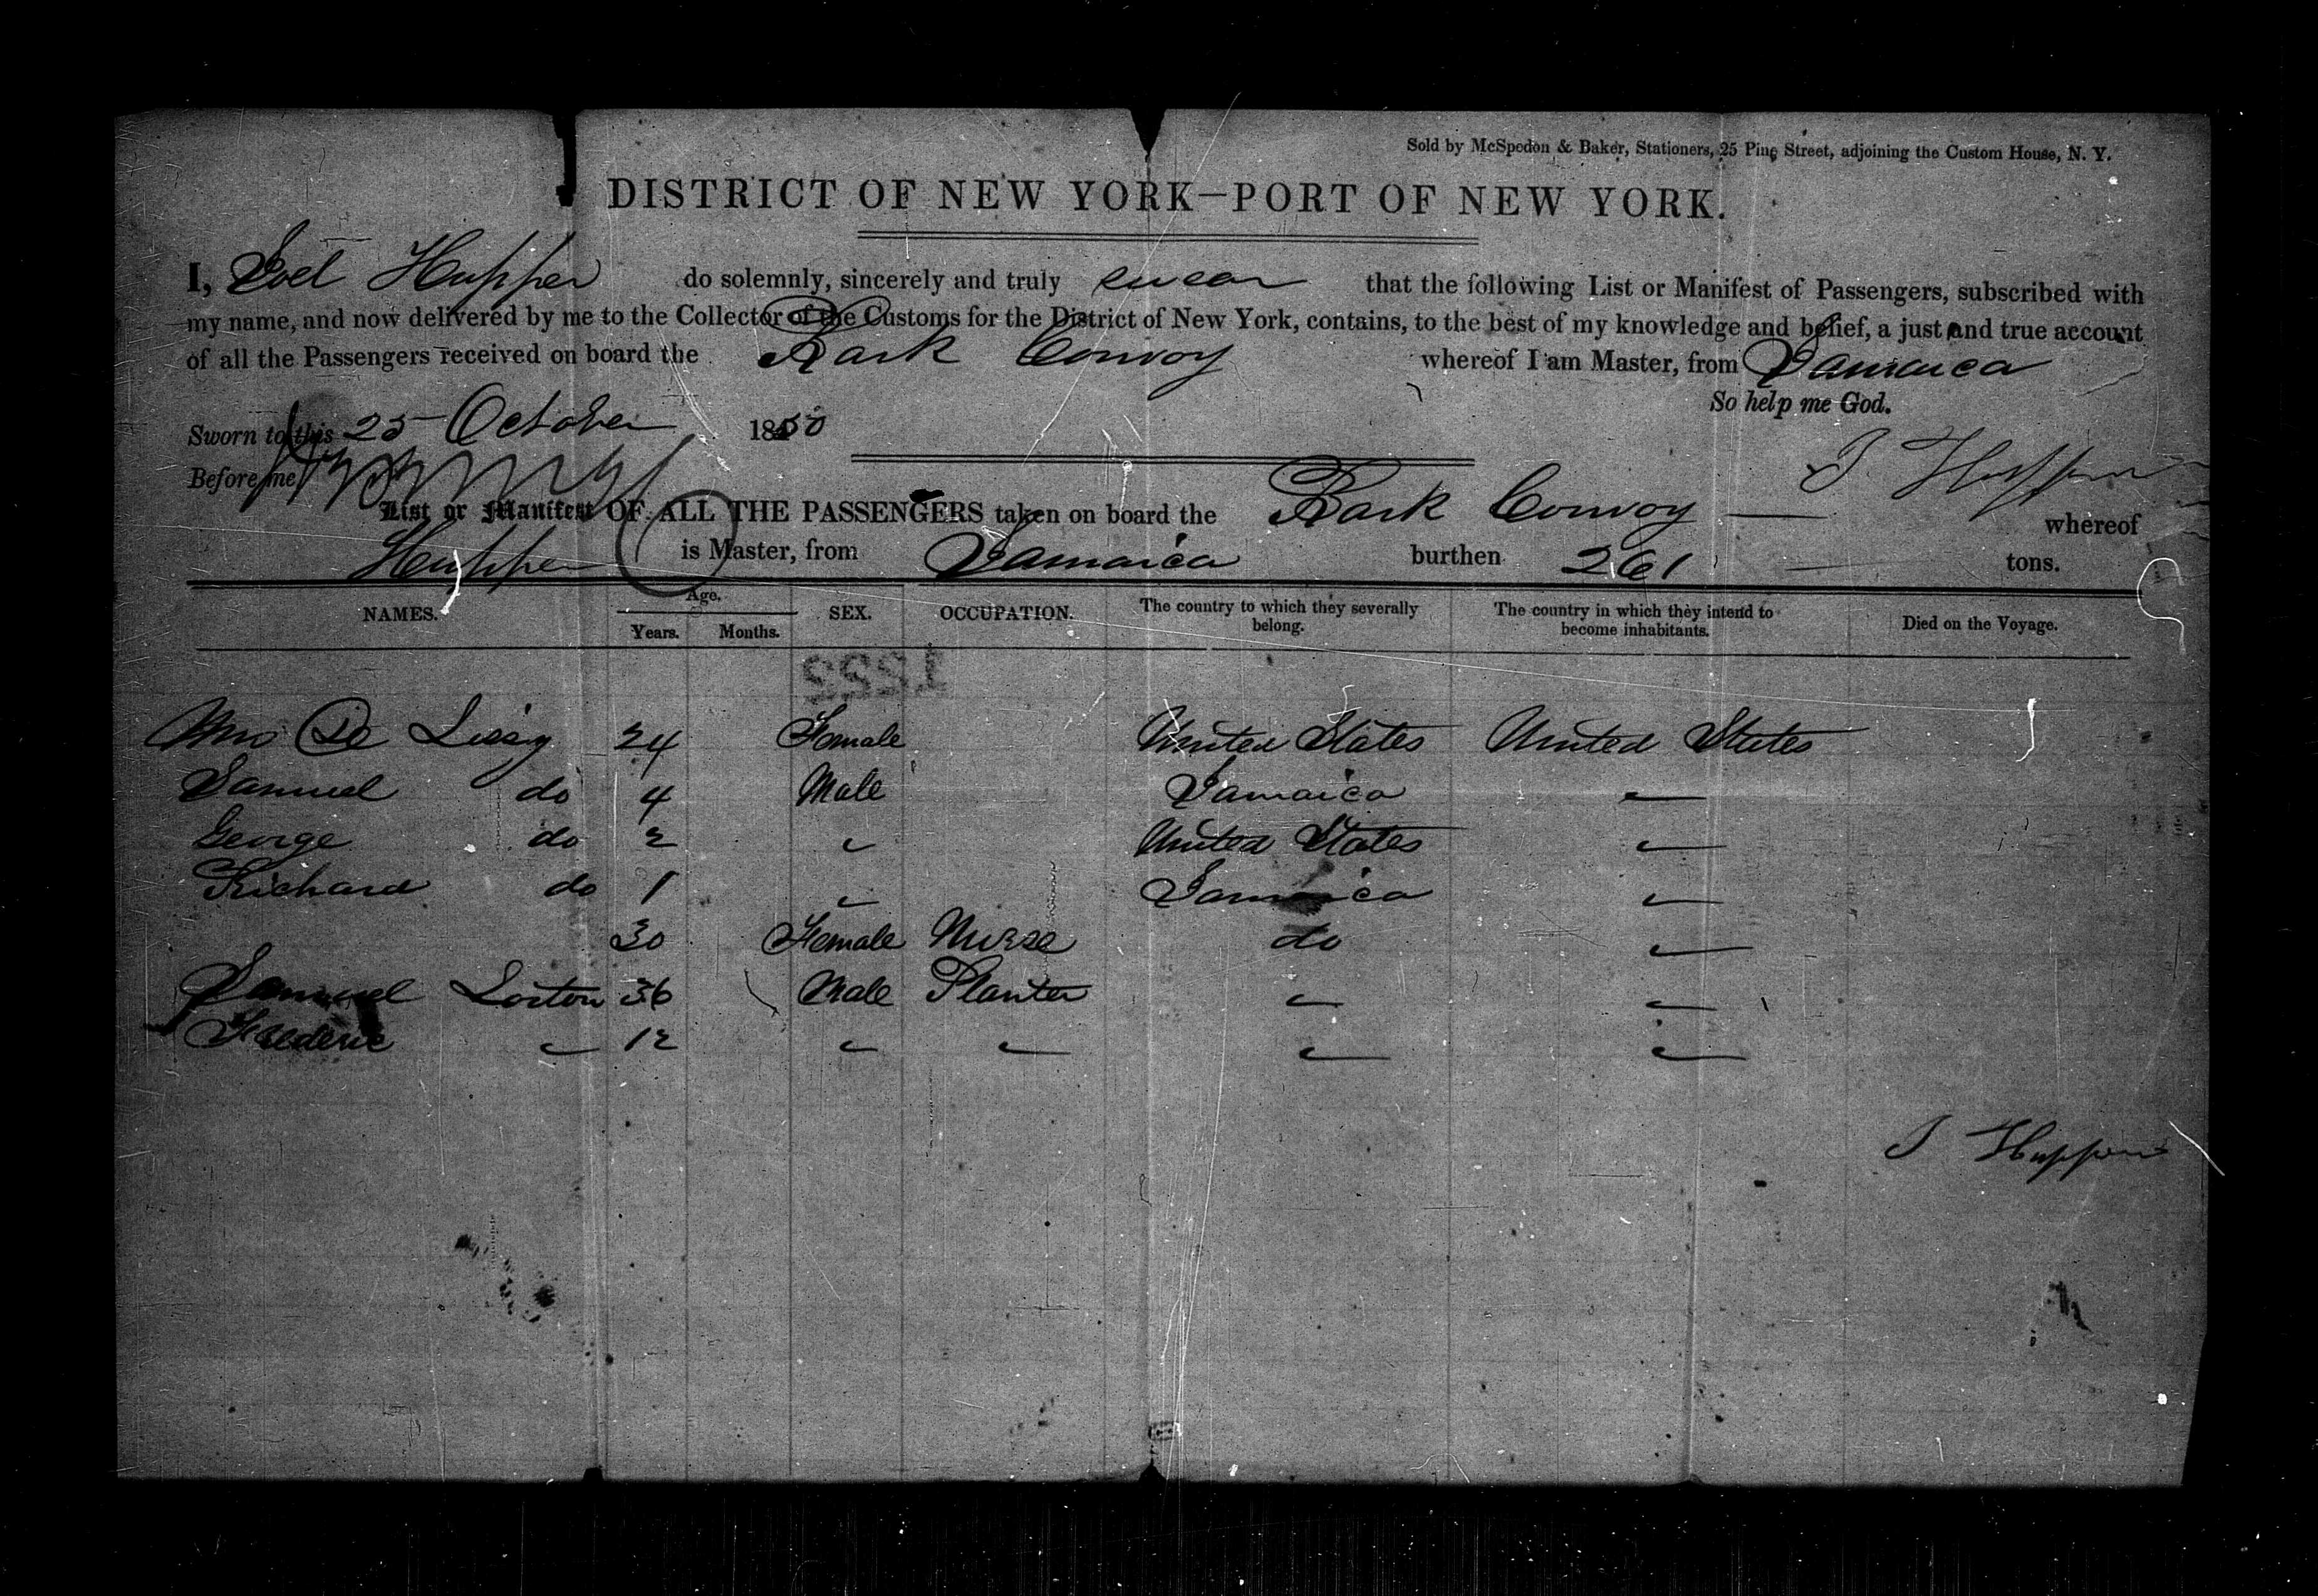 Sold by McSpedon & Baker, Stationers, 25 Pine Street, adjoining the Custom House, N. Y.
DISTRICT OF NEW YORK—PORT OF NEW YORK.
I, Joel Hupper do solemnly, sincerely and truly swear that the following List or Manifest of Passengers, subscribed with
my name, and now delivered by me to the Collector of the Customs for the District of New York, contains, to the best of my knowledge and belief, a just and true account
of all the Passengers received on board the Bark Convoy whereof I am Master, from Jamaica
So help me God.
Sworn to this 25 October 1850
J. Hupper
Before me
List or Manifest OF ALL THE PASSENGERS taken on board the Bark Convoy whereof
Hupper is Master, from Jamaica burthen 261 tons.
NAMES. Age. Years. Months. SEX. OCCUPATION. The country to which they severally belong. The country in which they intend to become inhabitants. Died on the Voyage.
1222
Mrs De Lissy 24 Female United States United States
Samuel do 4 Male Jamaica "
George do 2 " United States "
Richard do 1 " Jamaica "
30 Female Nurse do "
Samuel Lorton 36 Male Planter " "
Frederic " 12 " " " "
J Hupper